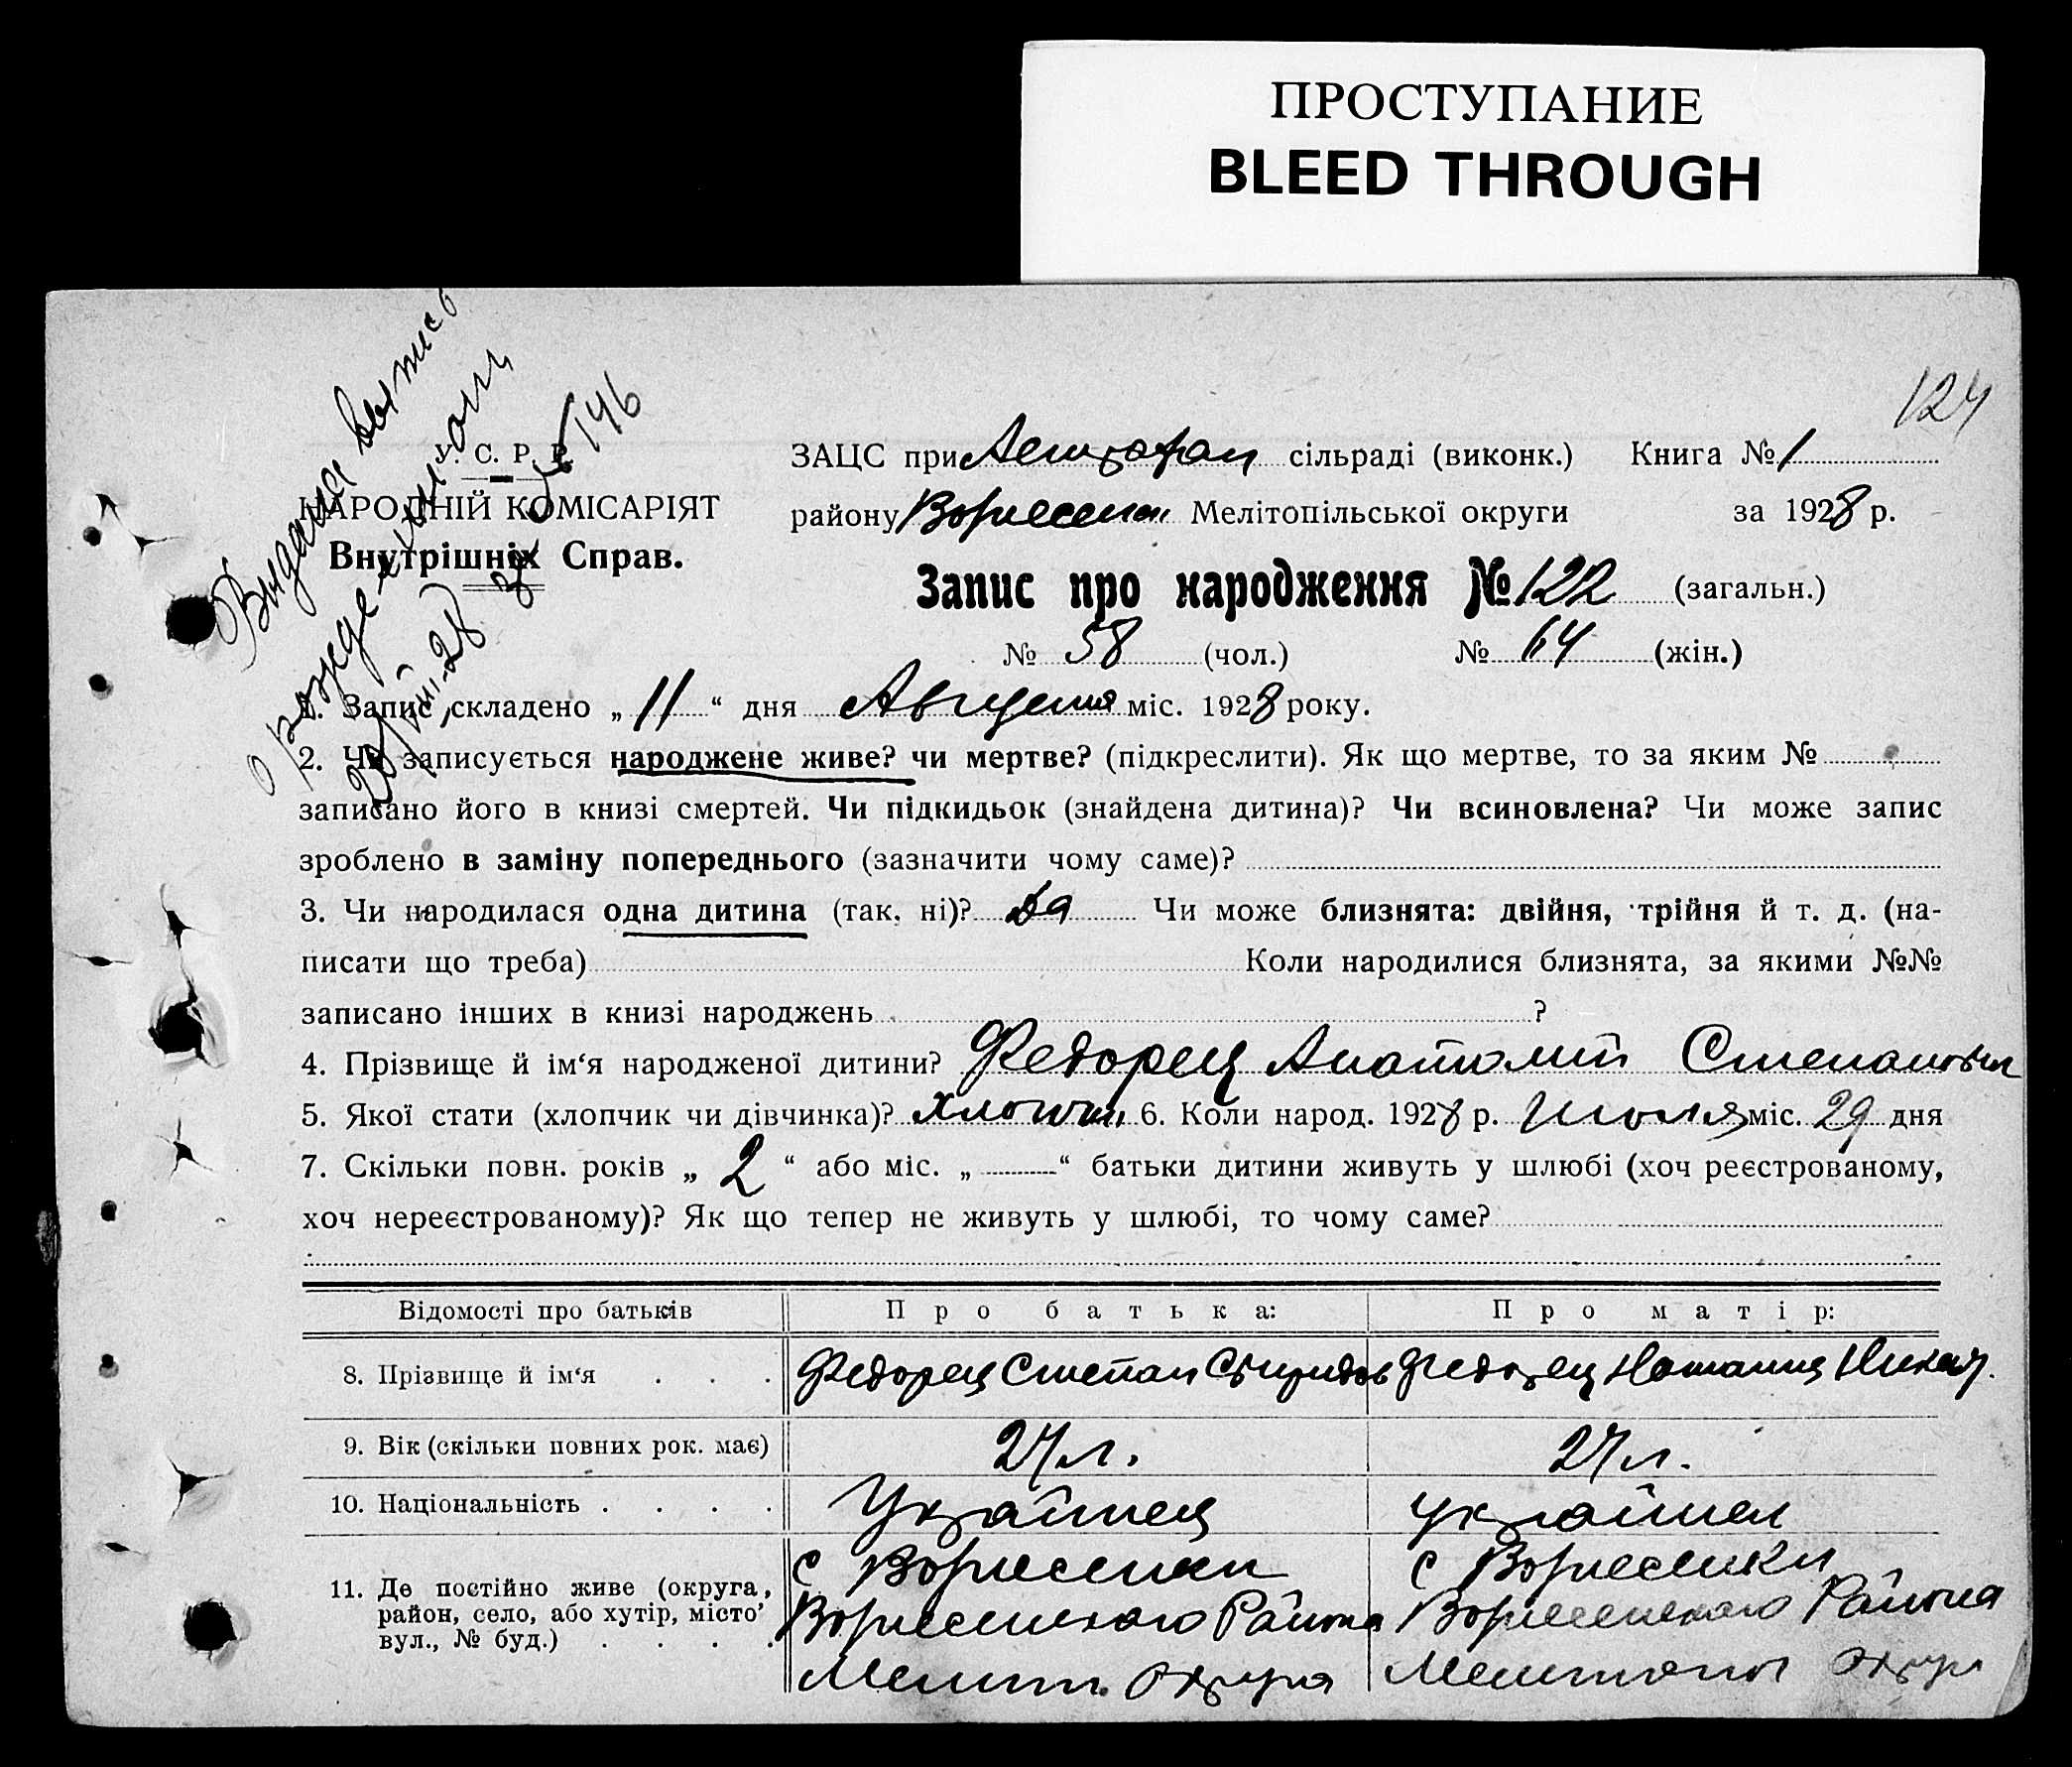 ПРОСТУПАНИЕ
BLEED THROUGH
124
Выдана выпись
о рождении
28 146
У. С. Р. Р.
НАРОДНІЙ КОМІСАРІЯТ
Внутрішніх Справ.
ЗАЦС при сільраді (виконк.) Книга № 1
району Мелітопільської округи за 1928 р.
Запис про народження № 122 (загальн.)
№ 58 (чол.) № 64 (жін.)
1. Запис складено „ 11 “ дня Августа міс. 1928 року.
2. Чи записується народжене живе? чи мертве? (підкреслити). Як що мертве, то за яким №
записано його в книзі смертей. Чи підкидьок (знайдена дитина)? Чи всиновлена? Чи може запис
зроблено в заміну попереднього (зазначити чому саме)?
3. Чи народилася одна дитина (так, ні)? да Чи може близнята: двійня, трійня й т. д. (на-
писати що треба) Коли народилися близнята, за якими №№
записано інших в книзі народжень ?
4. Прізвище й ім‘я народженої дитини? Федорец Анатолий Степанович
5. Якої стати (хлопчик чи дівчинка)? хлопчик 6. Коли народ. 1928 р. Июля міс. 29 дня
7. Скільки повн. років „ 2 “ або міс. „ “ батьки дитини живуть у шлюбі (хоч реєстрованому,
хоч нереєстрованому)? Як що тепер не живуть у шлюбі, то чому саме?
Відомості про батьків Про батька: Про матір:
8. Прізвище й ім‘я . . . Федорец Степан Спиридов Федорец
9. Вік (скільки повних рок. має) 27 л. 27 л.
10. Національність . . . . Украинец
11. Де постійно живе (округа, район, село, або хутір, місто, вул., № буд.) . . . .
с
Района
Мелит. Округа
с
Района